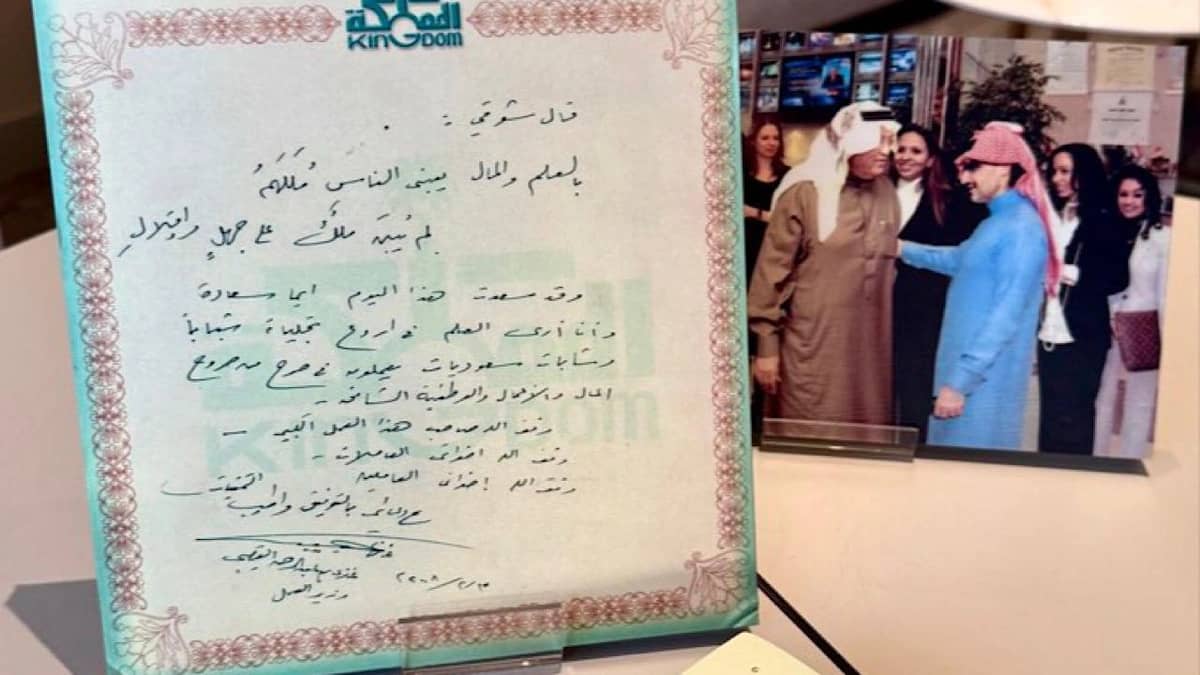 المملكة
KINGDOM
قال شوقي :-
بالعلم والمال يبني الناسُ مُلكَهمُ
لم يُبنَ ملكٌ على جهلٍ وإقلالِ
وقد سعدت هذا اليوم أيما سعادة
وأنا أرى العلم في أروع تجلياته شباباً
وشابات سعوديات يعملون في صرح من صروح
المال والأعمال والوطنية الشامخة -
وفق الله صاحب هذا العمل الكبير -
وفق الله اخواتي العاملات -
وفق الله إخواني العاملين
مع دعائي بالتوفيق وأطيب التمنيات
غازي بن عبدالرحمن القصيبي
وزير العمل
KINGDOM